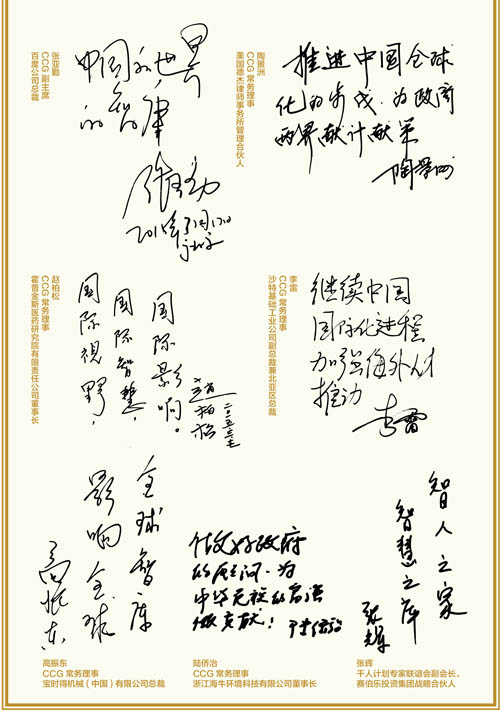 张亚勤
CCG 副主席
百度公司总裁
中国和世界
的智库
张亚勤
陶景洲
CCG 常务理事
美国德杰律师事务所管理合伙人
推进中国全球
化的步伐,为政商
两界献计献策
陶景洲
赵柏松
CCG 常务理事
霍普金斯医药研究院有限责任公司董事长
国际视野,
国际智慧,
国际影响。
赵柏松
李雷
CCG 常务理事
沙特基础工业公司副总裁兼北亚区总裁
继续中国
国际化进程
加强海外人才
推动
李雷
全球智库
影响全球
高振东
高振东
CCG 常务理事
宝时得机械(中国)有限公司总裁
做好政府
的顾问,为
中华
做贡献!
陆侨治
陆侨治
CCG 常务理事
浙江海牛环境科技有限公司董事长
智人之家
智慧之库
张辉
张辉
千人计划专家联谊会副会长、
赛伯乐投资集团战略合伙人